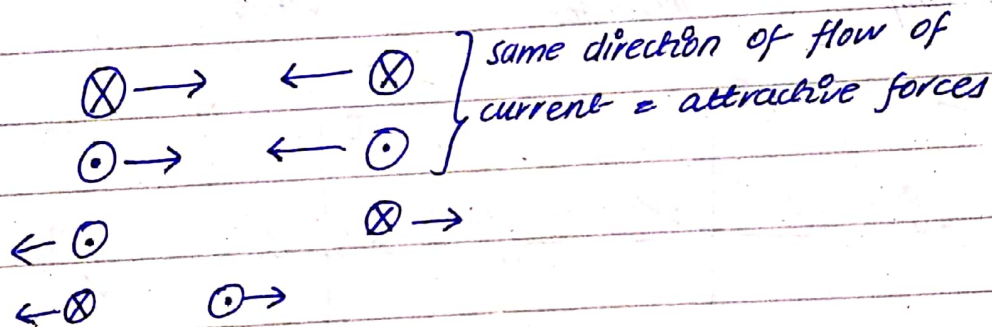 same direction of flow of
current = attractive forces